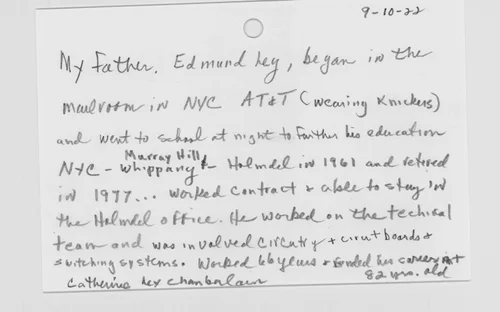 9-10-22
My Father, Edmund Ley, began in the
mailroom in NYC AT&T (wearing knickers)
and went to school at night to further his education
Murray Hill
NYC - Whippany & Holmdel in 1961 and retired
in 1977... worked contract & able to stay in
the Holmdel office. He worked on the techical
team and was involved circutry + cirut boards +
switching systems. Worked 66 years + ended his career at
Catherine Ley Chamberlain 82 yrs. old